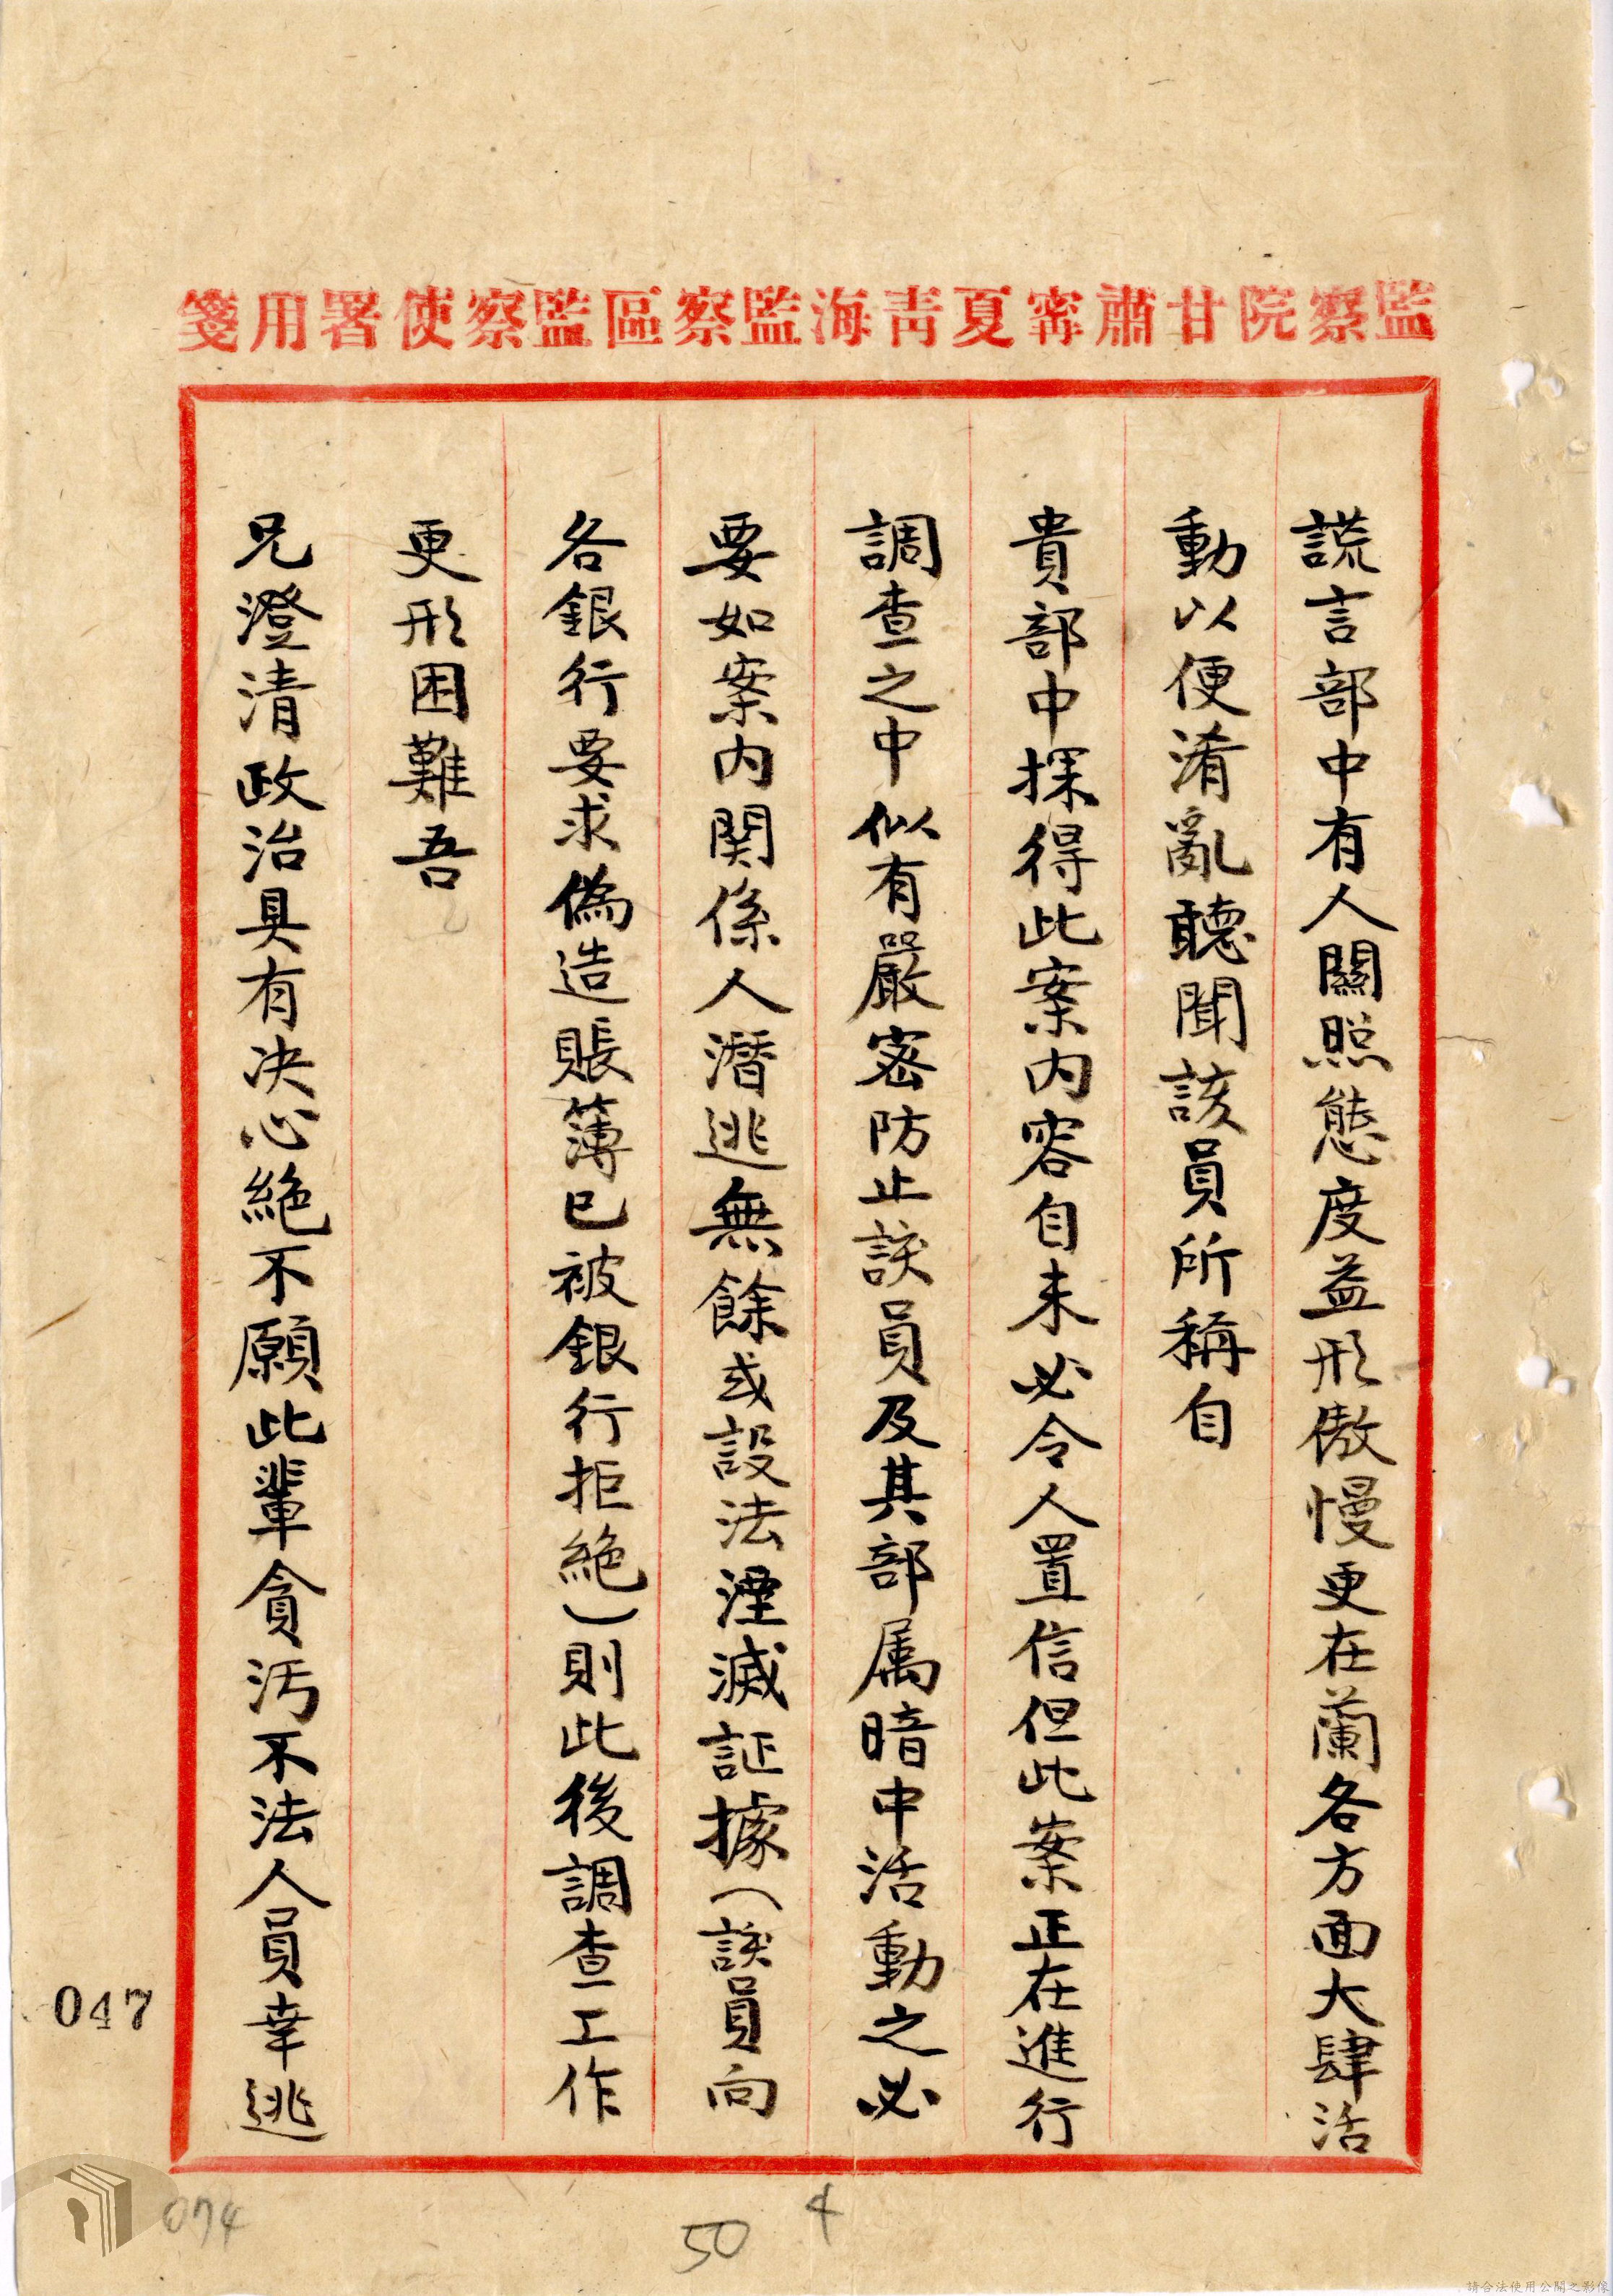 監察院甘肅寗夏青海監察區監察使署用箋
謊言部中有人關照態度益形傲慢更在蘭各方面大肆活
動以便淆亂聽聞該員所稱自
貴部中探得此案內容自未必令人置信但此案正在進行
調查之中似有嚴密防止該員及其部属暗中活動之必
要如案內関係人潛逃無餘或設法湮滅証據（該員向
各銀行要求偽造賬簿已被銀行拒絕）則此後調查工作
更形困難吾
兄澄清政治具有决心絕不願此輩貪污不法人員幸逃
047
074
50
4
請合法使用公開之影像